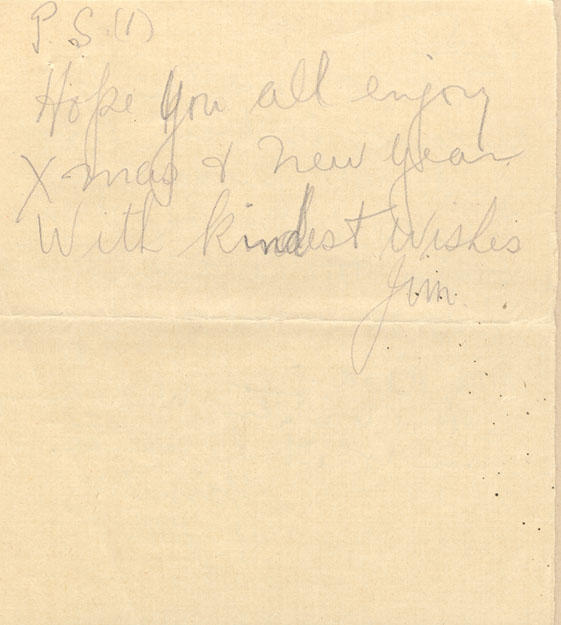 P.S. (1)
Hope you all enjoy
X-mas & New Year
With kindest Wishes
Jim.